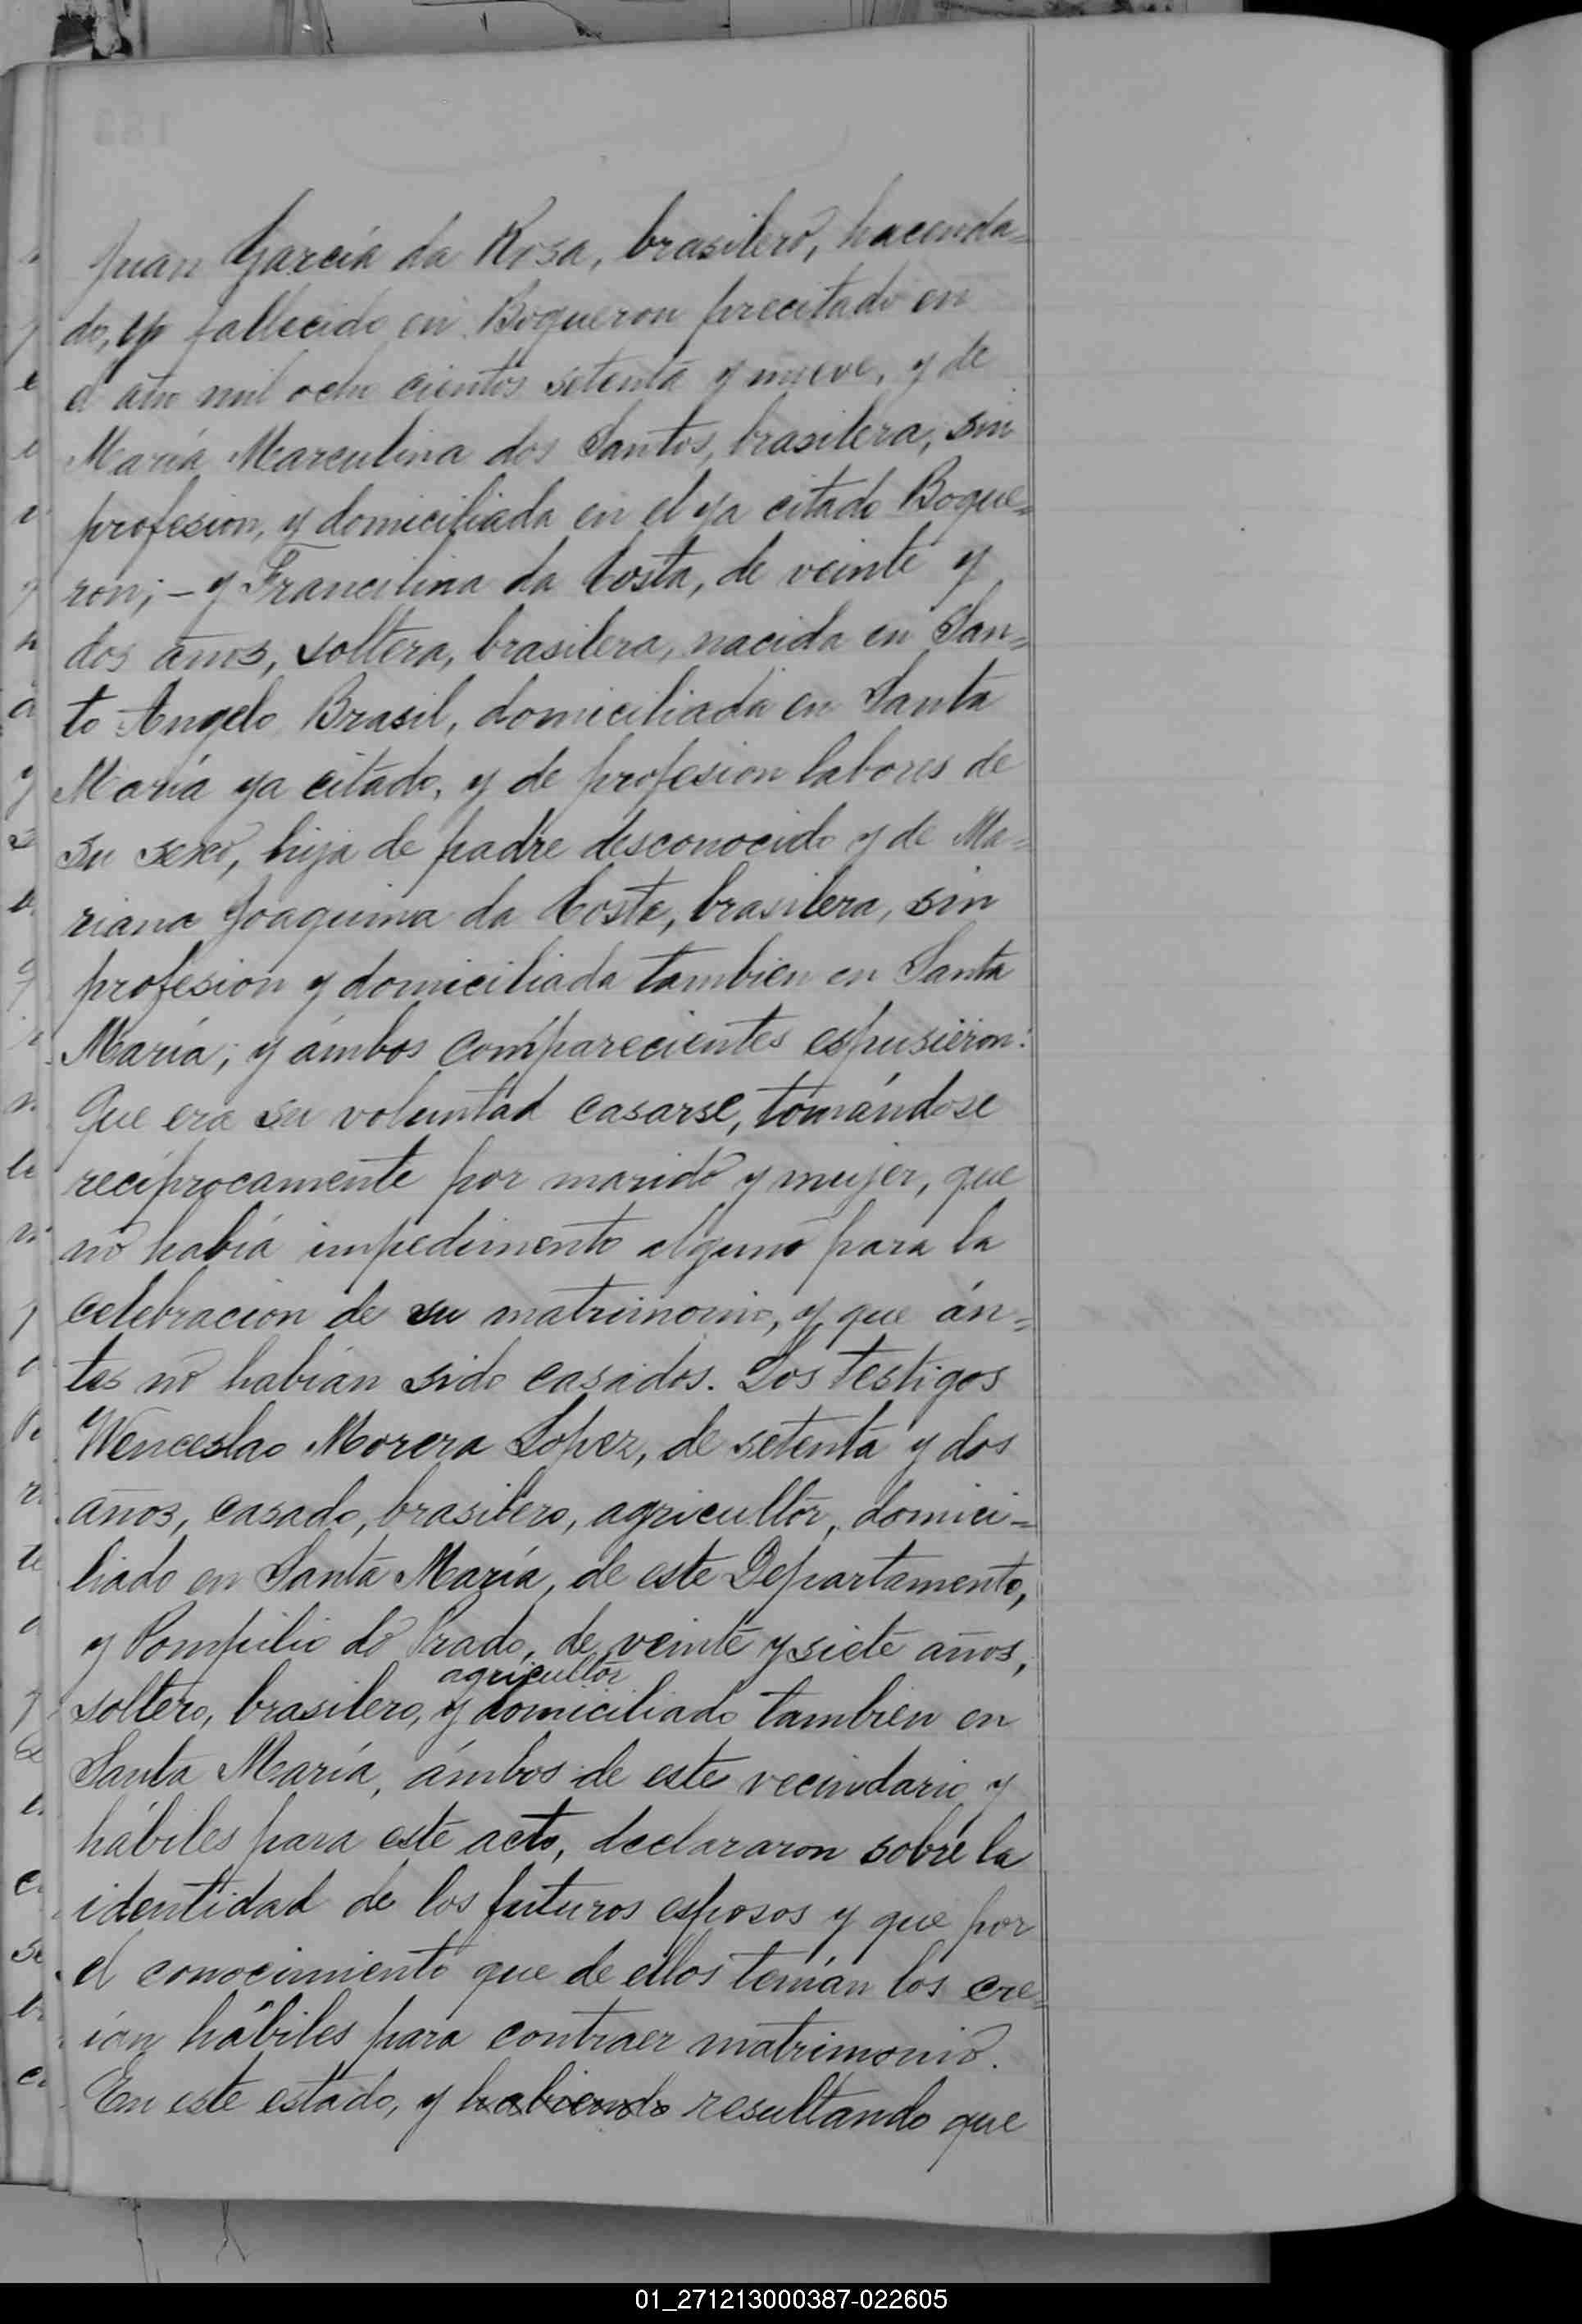 Juan García da Rosa, brasilero, hacenda=
do, y fallecido en Boqueron precitado en
el año mil ocho cientos setenta y nueve, y de
María Marculina dos Santos, brasilera, sin
profesion, y domiciliada en el ya citado Boque=
ron; – y Francilina da Costa, de veinte y
dos años, soltera, brasilera, nacida en San=
to Angelo Brasil, domiciliada en Santa
María ya citado, y de profesion labores de
su sexo, hija de padre desconocido y de Ma=
riana Joaquina da Costa, brasilera, sin
profesion y domiciliada tambien en Santa
María; y ámbos comparecientes espusieron:
Que era su voluntad casarse, tomándose
recíprocamente por marido y mujer, que
no había impedimento alguno para la
celebracion de su matrimonio, y que án=
tes no habían sido casados. Los testigos
Wenceslao Morera Lopez, de setenta y dos
años, casado, brasilero, agricultor, domici=
liado en Santa María, de este Departamento,
y Pompilio do Prado, de veinte y siete años,
agricultor
soltero, brasilero, y domiciliado tambien en
Santa María, ámbos de este vecindario y
hábiles para este acto, declararon sobre la
identidad de los futuros esposos y que por
el conocimiento que de ellos tenían los cre=
ían hábiles para contraer matrimonio.
En este estado, y habiendo resultando que
01_271213000387-022605